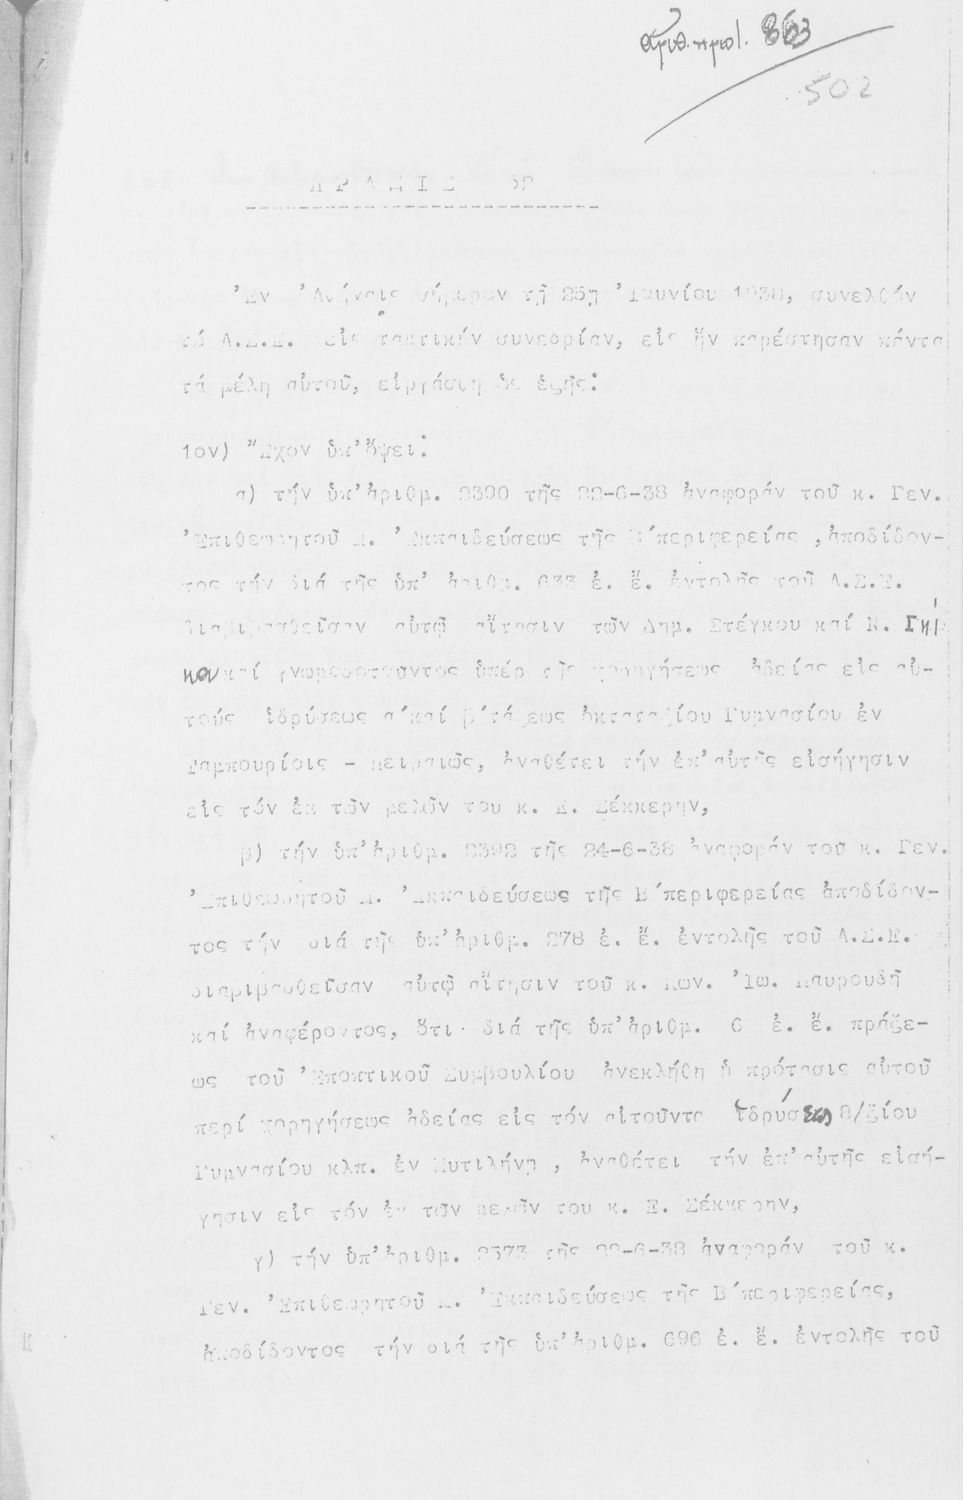 ἀριθ. πρωτ. 863
502
ΠΡΑΞΙΣ 52
Ἐν Ἀθήναις σήμερον τῇ 25ῃ Ἰουνίου 1938, συνελθόν
τό Α.Σ.Ε. εἰς τακτικήν συνεδρίαν, εἰς ἥν παρέστησαν πάντα
τά μέλη αὐτοῦ, εἰργάσθη ὡς ἑξῆς:
1ον) Ἔχον ὑπ' ὄψει:
α) τήν ὑπ' ἀριθμ. 2390 τῆς 22-6-38 ἀναφοράν τοῦ κ. Γεν.
Ἐπιθεωρητοῦ Μ. Ἐκπαιδεύσεως τῆς Β' περιφερείας, ἀποδίδον-
τος τήν διά τῆς ὑπ' ἀριθμ. 633 ἐ. ἔ. ἐντολῆς τοῦ Α.Σ.Ε.
διαβιβασθεῖσαν αὐτῷ αἴτησιν τῶν Δημ. Στέγκου καί Κ.
καί γνωμοδοτοῦντος ὑπέρ τῆς χορηγήσεως ἀδείας εἰς αὐ-
τούς ἱδρύσεως α' καί β' τάξεως ὀκταταξίου Γυμνασίου ἐν
Ταμπουρίοις - Πειραιῶς, ἀναθέτει τήν ἐπ' αὐτῆς εἰσήγησιν
εἰς τόν ἐκ τῶν μελῶν του κ. Ε. Σέκκερην,
β) τήν ὑπ' ἀριθμ. 2392 τῆς 24-6-38 ἀναφοράν τοῦ κ. Γεν.
Ἐπιθεωρητοῦ Μ. Ἐκπαιδεύσεως τῆς Β' περιφερείας ἀποδίδον-
τος τήν διά τῆς ὑπ' ἀριθμ. 278 ἐ. ἔ. ἐντολῆς τοῦ Α.Σ.Ε.
διαβιβασθεῖσαν αὐτῷ αἴτησιν τοῦ κ. Κων. Ἰω. Μαυρουδῆ
καί ἀναφέροντος, ὅτι διά τῆς ὑπ' ἀριθμ. 6 ἐ. ἔ. πράξε-
ως τοῦ Ἐποπτικοῦ Συμβουλίου ἀνεκλήθη ἡ πρότασις αὐτοῦ
περί χορηγήσεως ἀδείας εἰς τόν αἰτοῦντα ἱδρύσεως 8/ξίου
Γυμνασίου κλπ. ἐν Μυτιλήνῃ, ἀναθέτει τήν ἐπ' αὐτῆς εἰσή-
γησιν εἰς τόν ἐκ τῶν μελῶν του κ. Ε. Σέκκερην,
γ) τήν ὑπ' ἀριθμ. 2373 τῆς 22-6-38 ἀναφοράν τοῦ κ.
Γεν. Ἐπιθεωρητοῦ Μ. Ἐκπαιδεύσεως τῆς Β' περιφερείας,
ἀποδίδοντος τήν διά τῆς ὑπ' ἀριθμ. 696 ἐ. ἔ. ἐντολῆς τοῦ